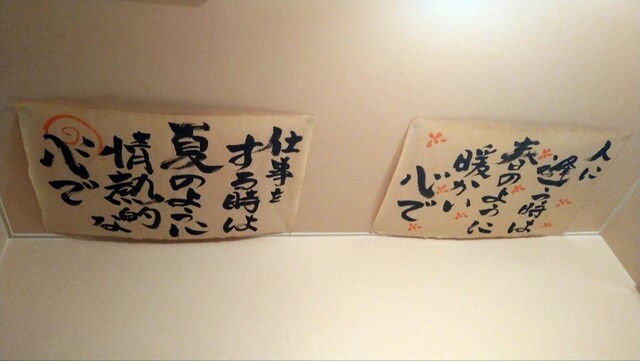 人に
逢う時は
春のように
暖かい
心で
仕事を
する時は
夏のように
情熱的な
心で